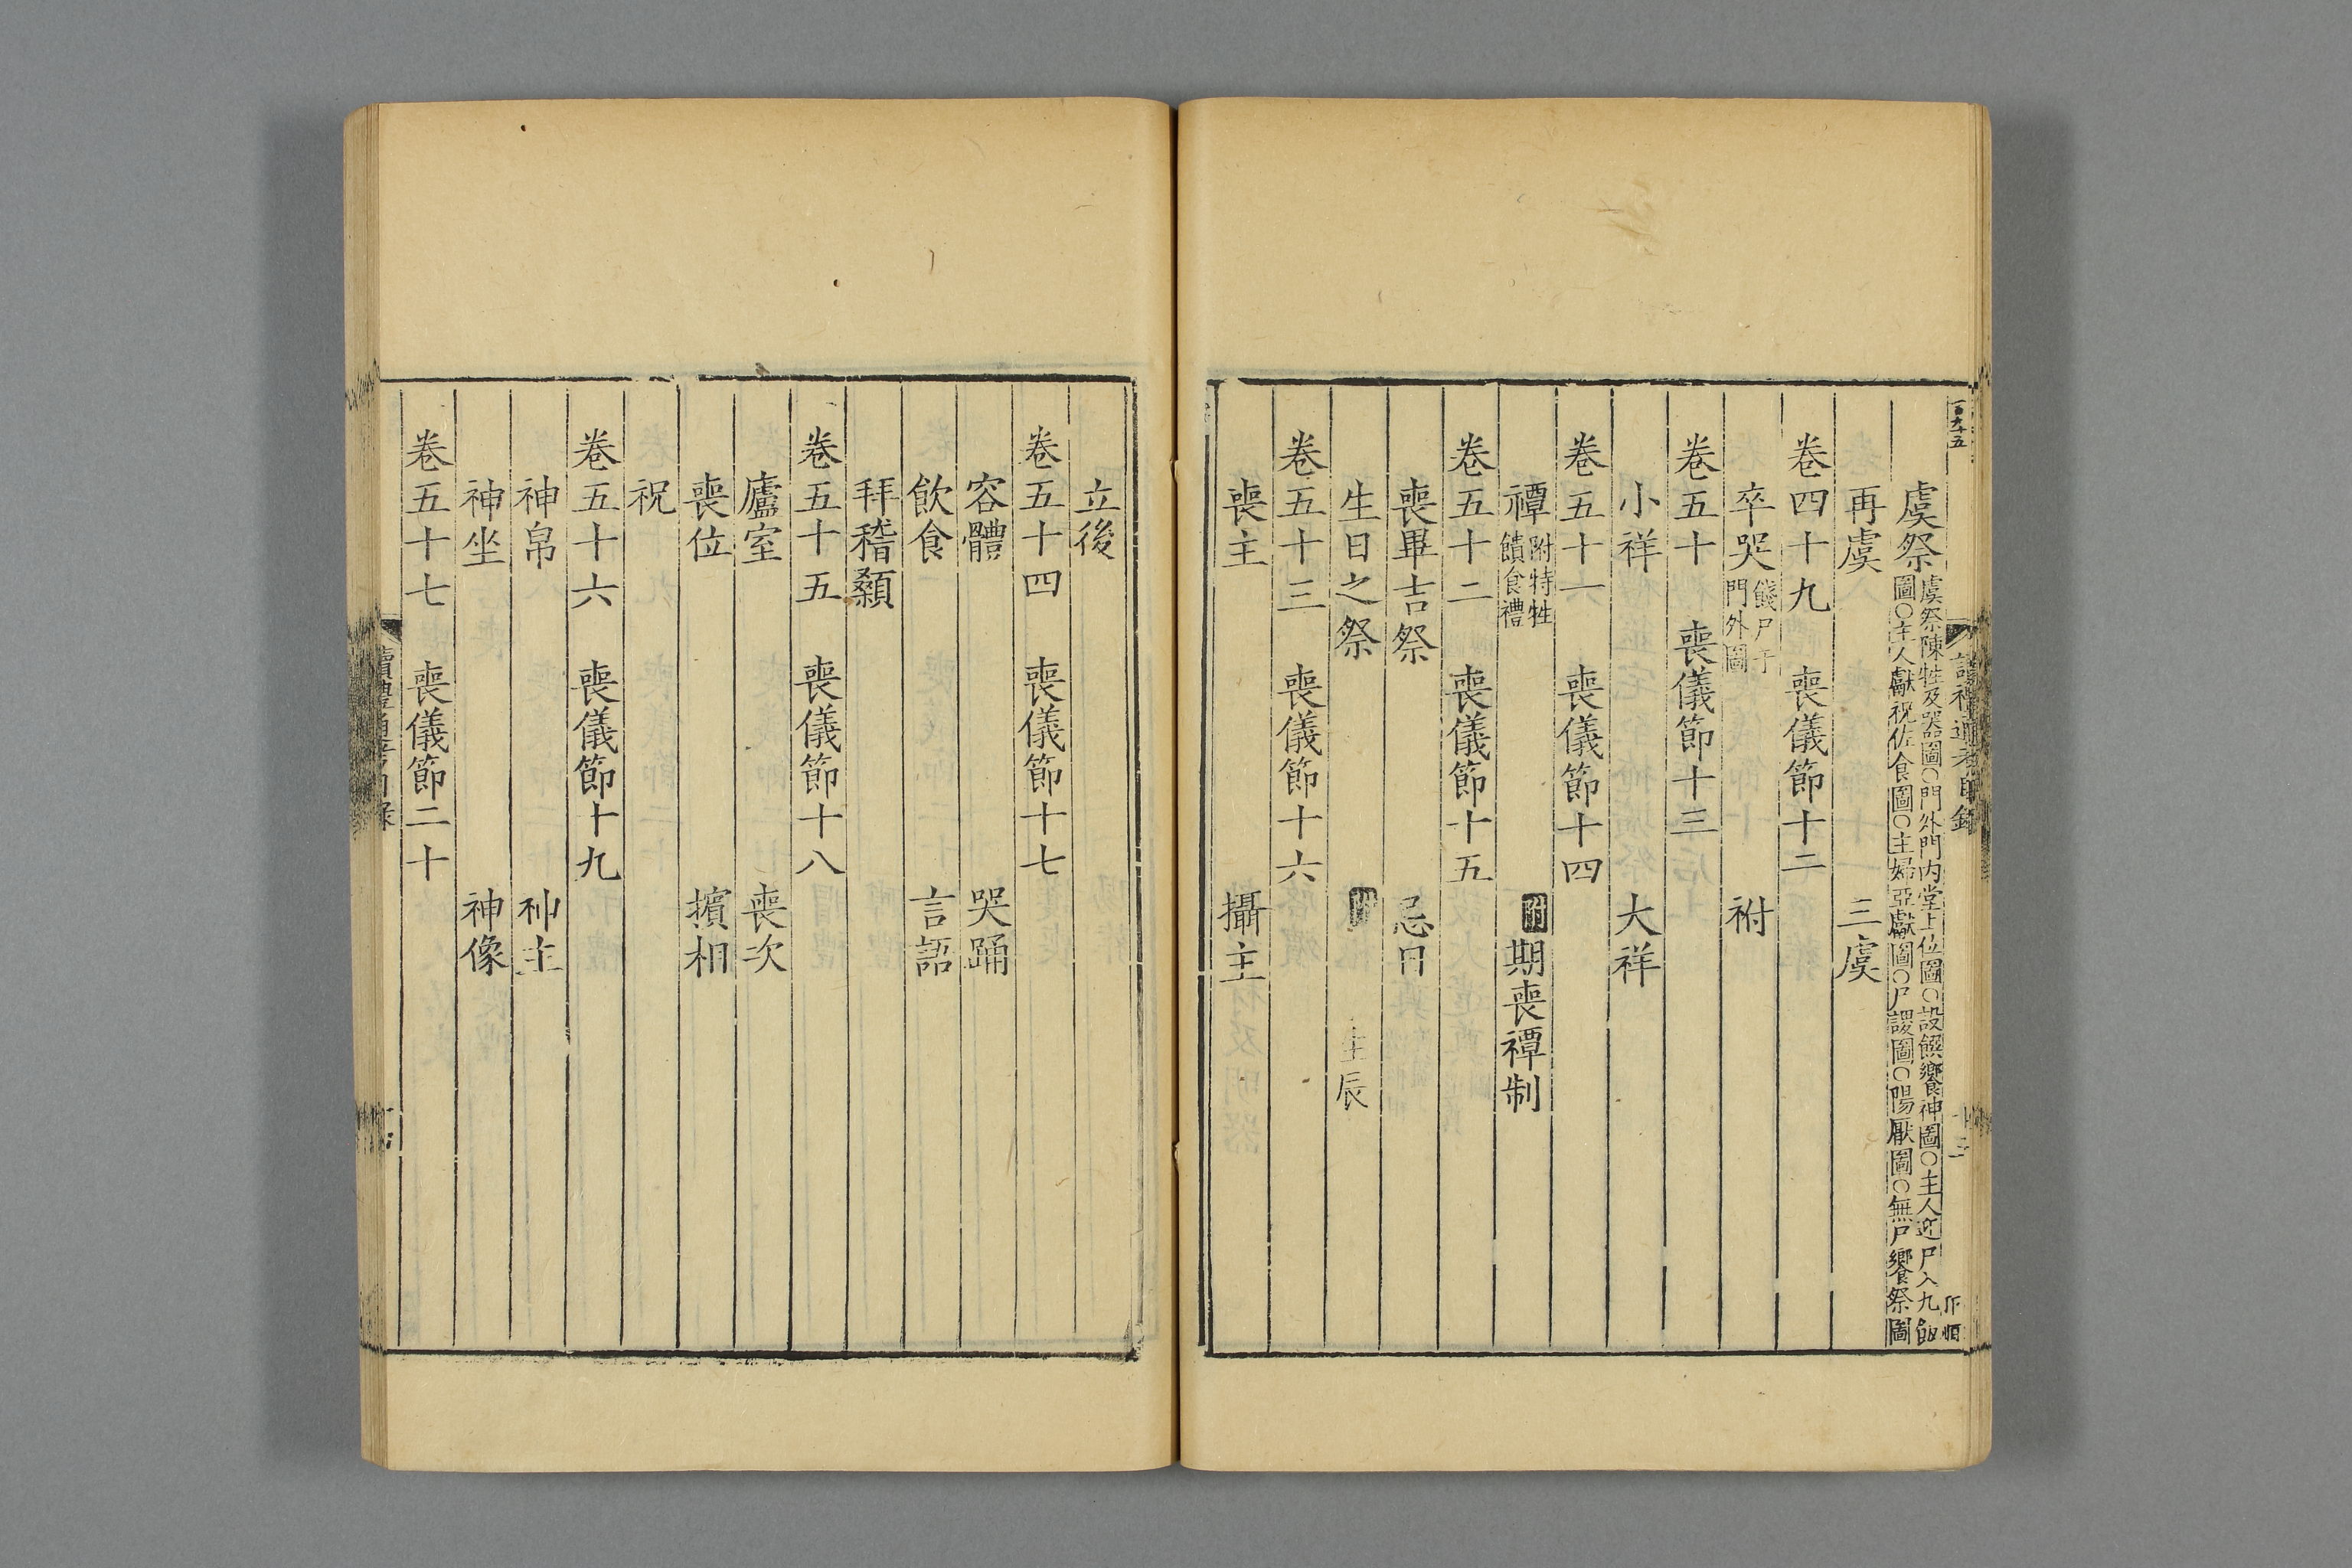 讀禮通考目錄
虞祭 虞祭陳牲及器圖○門外門內堂上位圖○設饌饗神圖○主人迎尸入九飯
圖○主人獻祝佐食圖○主婦亞獻圖○尸謖圖○陽厭圖○無尸饗祭圖
再虞 三虞
卷四十九 喪儀節十二
卒哭 餞尸于門外圖 祔
卷五十 喪儀節十三
小祥 大祥
卷五十一 喪儀節十四
禫 附特牲饋食禮 附期喪禫制
卷五十二 喪儀節十五
喪畢吉祭 忌日
生日之祭 附 生辰
卷五十三 喪儀節十六
喪主 攝主
立後
卷五十四 喪儀節十七
容體 哭踊
飲食 言語
拜稽顙
卷五十五 喪儀節十八
廬室 喪次
喪位 擯相
祝
卷五十六 喪儀節十九
神帛 神主
神坐 神像
卷五十七 喪儀節二十
讀禮通考目錄